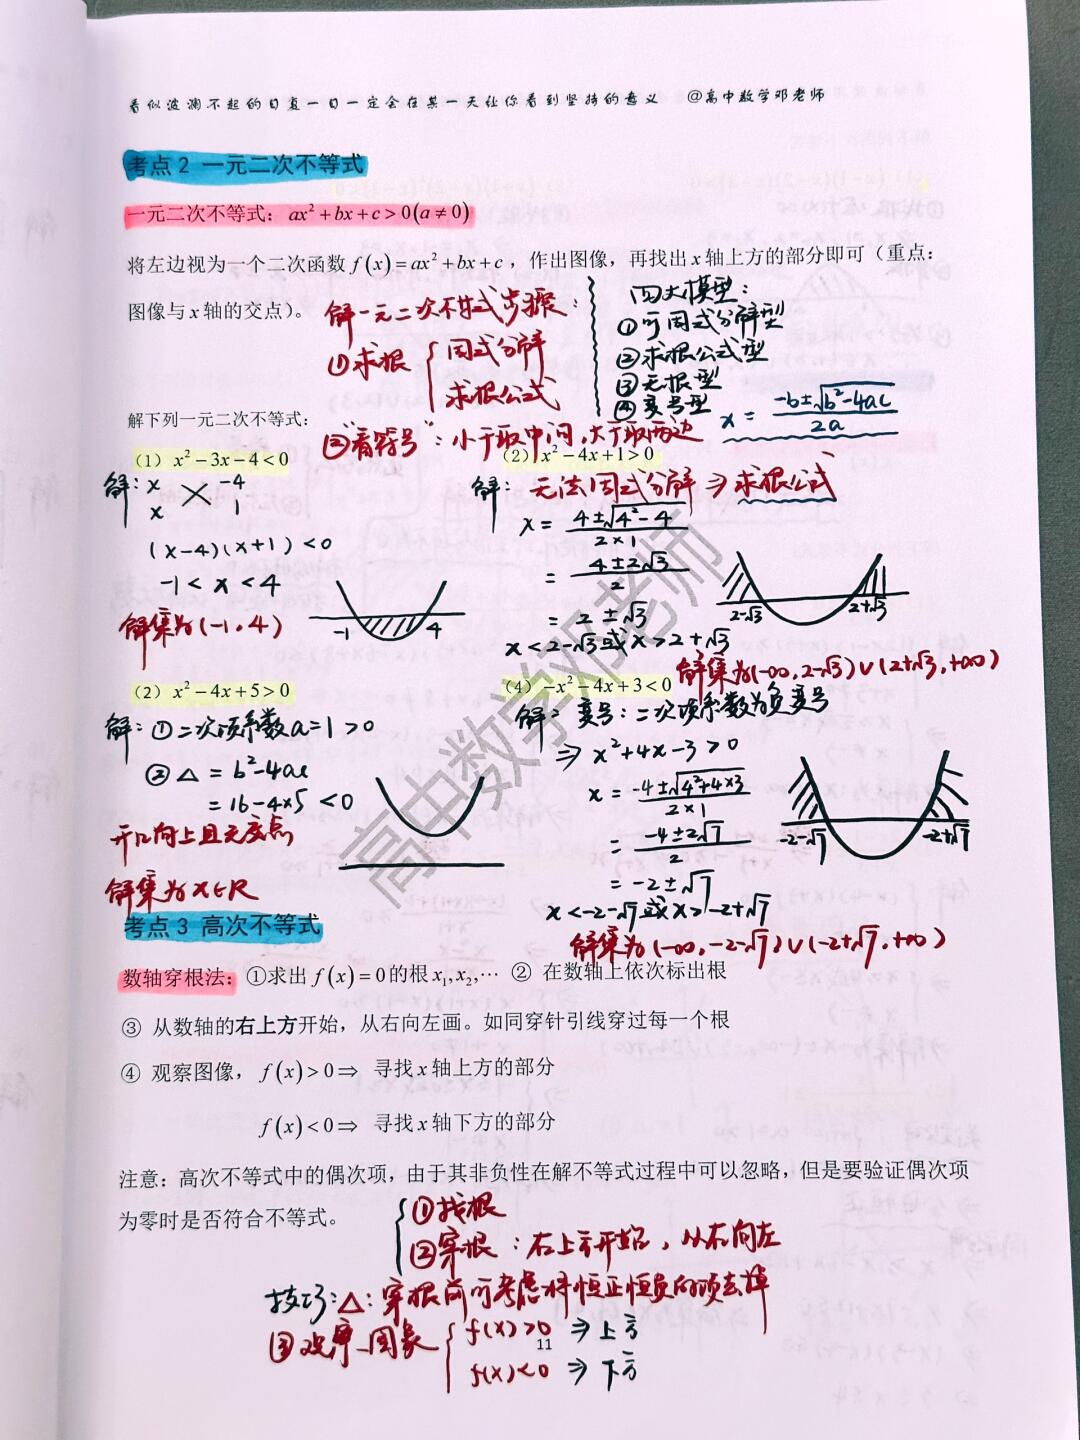 看似波澜不起的日复一日一定会在某一天让你看到坚持的意义 @高中数学邓老师
考点 2 一元二次不等式
一元二次不等式：ax²+bx+c>0(a≠0)
将左边视为一个二次函数 f(x)=ax²+bx+c，作出图像，再找出 x 轴上方的部分即可（重点：
图像与 x 轴的交点）。
解一元二次不等式步骤：
①求根 { 因式分解
求根公式
②"看符号"：小于取中间，大于取两边
四大模型：
①可因式分解型
②求根公式型
③无根型
④变号型
x = (-b±√(b²-4ac))/2a
解下列一元二次不等式：
（1） x²-3x-4<0
解：x -4
x 1
(x-4)(x+1)<0
-1<x<4
解集为(-1,4)
-1 4
（2） x²-4x+1>0
解：无法因式分解⇒求根公式
x = (4±√(4²-4))/(2×1)
= (4±2√3)/2
= 2±√3
x<2-√3或x>2+√3
2-√3 2+√3
解集为(-∞,2-√3)∪(2+√3,+∞)
（2） x²-4x+5>0
解：①二次项系数a=1>0
②△=b²-4ac
=16-4×5<0
开口向上且无交点
解集为x∈R
（4） -x²-4x+3<0
解：变号：二次项系数为负变号
⇒x²+4x-3>0
x = (-4±√(4²+4×3))/(2×1)
= (-4±2√7)/2
= -2±√7
x<-2-√7或x>-2+√7
-2-√7 -2+√7
解集为(-∞,-2-√7)∪(-2+√7,+∞)
考点 3 高次不等式
数轴穿根法：①求出 f(x)=0的根 x₁,x₂,⋯ ② 在数轴上依次标出根
③ 从数轴的右上方开始，从右向左画。如同穿针引线穿过每一个根
④ 观察图像， f(x)>0⇒ 寻找 x 轴上方的部分
f(x)<0⇒ 寻找 x 轴下方的部分
注意：高次不等式中的偶次项，由于其非负性在解不等式过程中可以忽略，但是要验证偶次项
为零时是否符合不等式。
①找根
②穿根：右上方开始，从右向左
技巧：△：穿根前可考虑将恒正恒负的项去掉
③观察图象 { f(x)>0⇒上方
f(x)<0⇒下方
11
高中数学邓老师